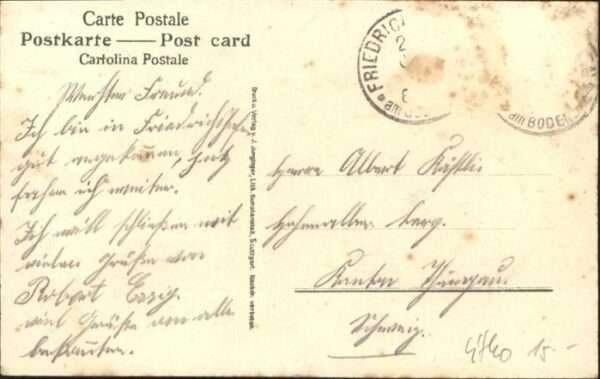 Carte Postale
Postkarte — Post card
Cartolina Postale
Werther Freund.
Ich bin in Friedrichshafen
gut angekommen, jetz
fahre ich weiter.
Ich will schließen mit
vielen Grüßen von
Robert Essig.
viel Grüße an alle
bekannten.
Druck u. Verlag v. J. Junginger, Lith. Kunstanstalt, Stuttgart. Nachdr. verboten.
FRIEDRIC
am BODEN
Herrn Albert Kästli
berg.
Kanton Thurgau.
Schweiz.
15.-